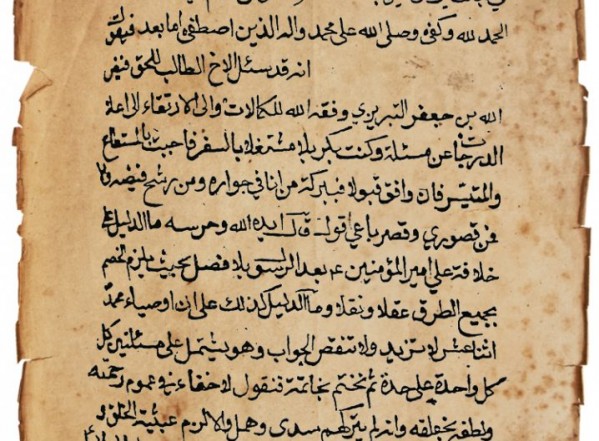 الحمد لله وكفى وصلى الله على محمد واله الذين اصطفى اما بعد فيقول
انه قد سئل الاخ الطالب للحق
الله بن جعفر التبريزي وفقه الله للكمالات والى الارتقاء الى اعلا
الدرجات عن مسئلة وكنت بكربلا مشتغلا بالسفر فاجبت بالمستطاع
والمتيسر فان وافق قبولا فببركة من انا في جواره ومن رشح فيضه والا
فمن قصوري وقصر باعي اقول قال ايده الله وحرسه ما الدليل على
خلافة على امير المؤمنين ع بعد الرسول بلا فصل بحيث يلزم الخصم
بجميع الطرق عقلا ونقلا وما الدليل كذلك على ان اوصياء محمد
اثنا عشر لا تزيد ولا تنقص الجواب وهو يشتمل على مسئلتين كل
كل واحدة على حدة ثم نختم بخاتمة فنقول لا خفاء في عموم رحمته
ولطفه بخلقه وانه لم يتركهم سدى وهملا والا لزم عبثية الخلق و